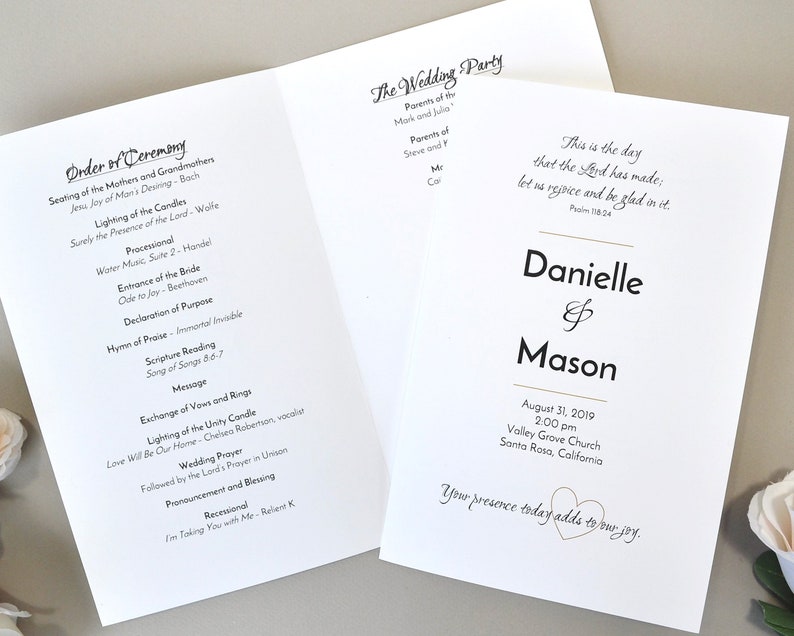 Order of Ceremony
Seating of the Mothers and Grandmothers
Jesu, Joy of Man's Desiring - Bach
Lighting of the Candles
Surely the Presence of the Lord - Wolfe
Processional
Water Music, Suite 2 - Handel
Entrance of the Bride
Ode to Joy - Beethoven
Declaration of Purpose
Hymn of Praise - Immortal Invisible
Scripture Reading
Song of Songs 8:6-7
Message
Exchange of Vows and Rings
Lighting of the Unity Candle
Love Will Be Our Home - Chelsea Robertson, vocalist
Wedding Prayer
Followed by the Lord's Prayer in Unison
Pronouncement and Blessing
Recessional
I'm Taking You with Me - Relient K
The Wedding Party
Parents of the
Mark and Julia
Parents of
Steve and
This is the day
that the Lord has made;
let us rejoice and be glad in it.
Psalm 118:24
Danielle
&
Mason
August 31, 2019
2:00 pm
Valley Grove Church
Santa Rosa, California
Your presence today adds to our joy.